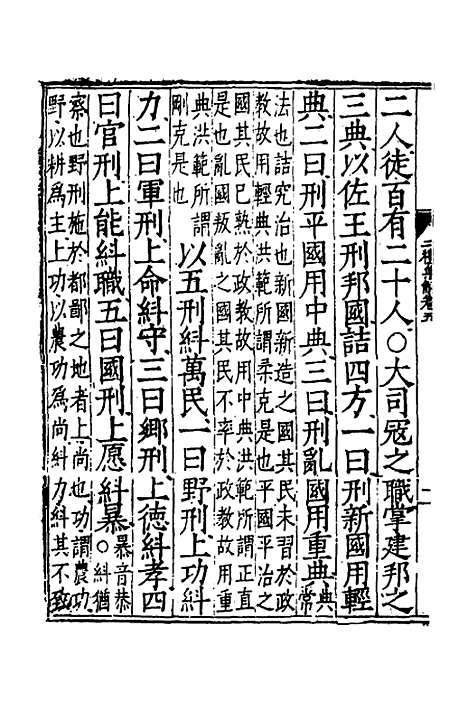 二人徒百有二十人○大司冦之職掌建邦之
三典以佐王刑邦國詰四方一曰刑新國用輕
典二曰刑平國用中典三曰刑亂國用重典典常
法也詰究治也新國新造之國其民未習於政
教故用輕典洪範所謂柔克是也平國平治之
國其民已熟於政教故用中典洪範所謂正直
是也亂國叛亂之國其民不率於政教故用重
典洪範所謂
剛克是也
以五刑糾萬民一曰野刑上功糾
力二曰軍刑上命糾守三曰鄉刑上德糾孝四
曰官刑上能糾職五曰國刑上愿糾暴○暴音恭
糾猶
察也野刑施於都鄙之地者上尚也功謂農功
野以耕爲主上功以農功爲尚糾力糾其不致
二